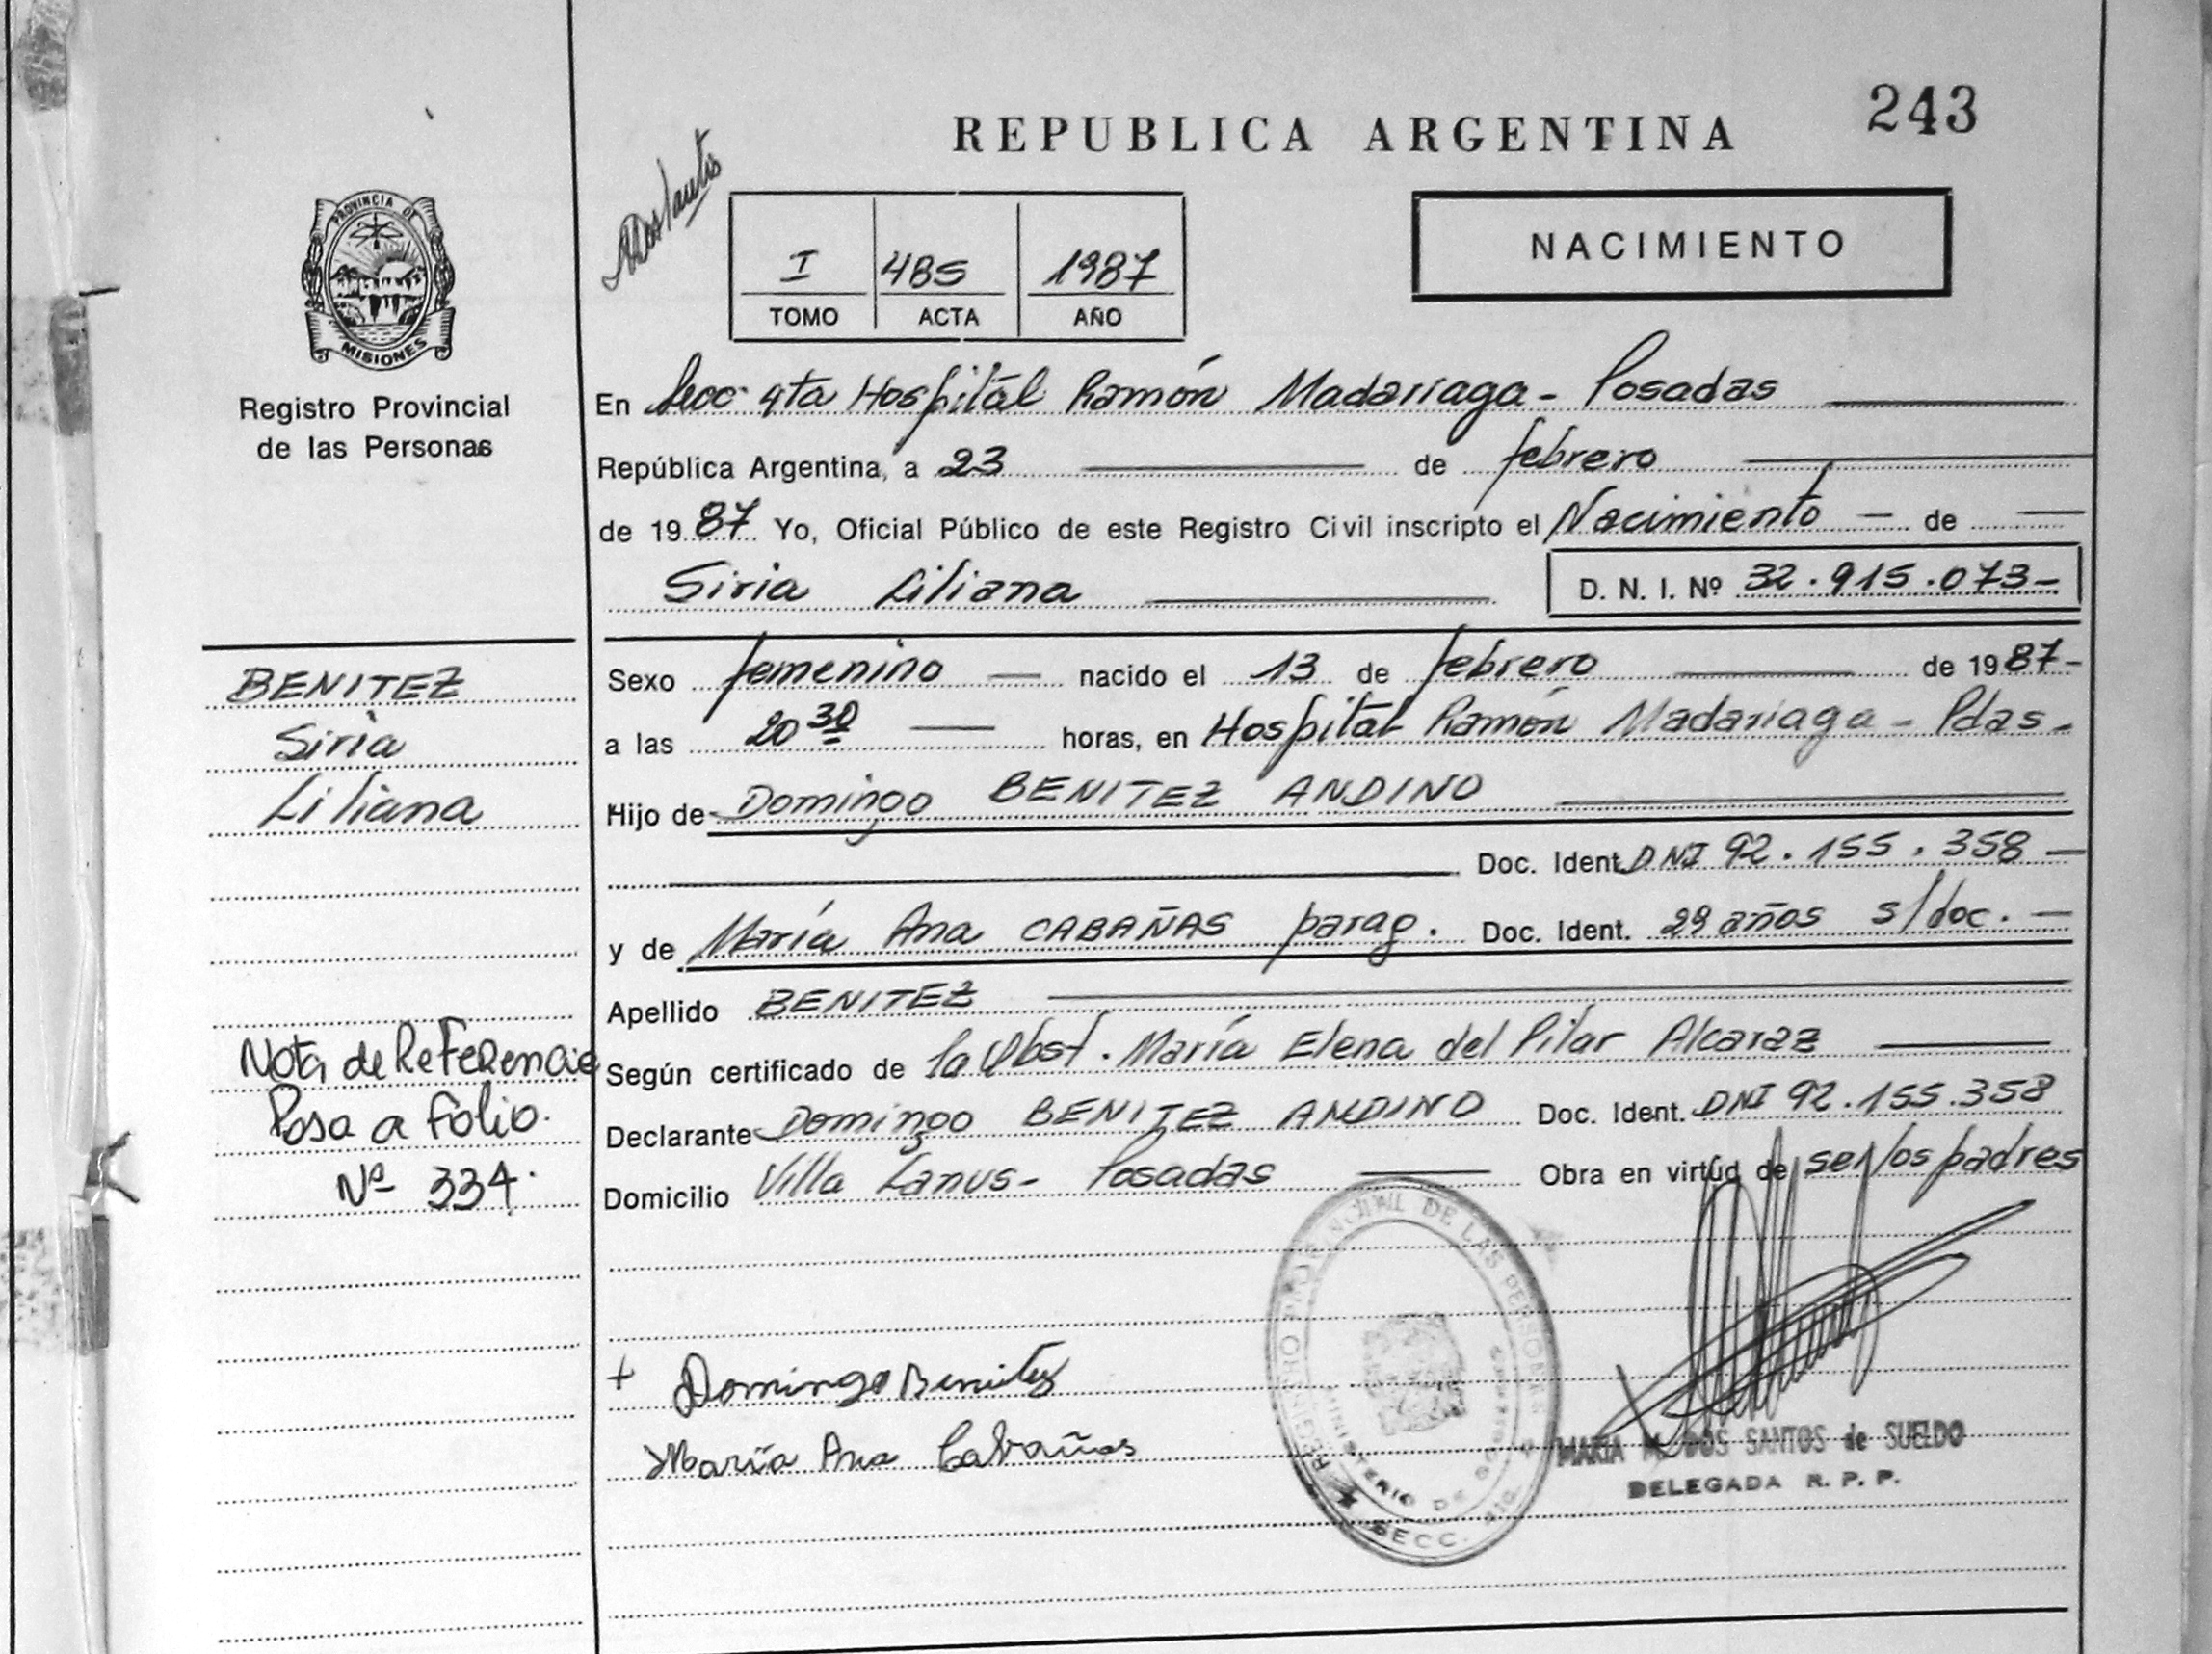 243
REPUBLICA ARGENTINA
PROVINCIA DE
MISIONES
Registro Provincial
de las Personas
I 485 1987
TOMO ACTA AÑO
NACIMIENTO
En Secc. 4ta Hospital Ramón Madariaga - Posadas
República Argentina, a 23 de febrero
de 1987 Yo, Oficial Público de este Registro Civil inscripto el Nacimiento - de
Siria Liliana
D. N. I. Nº 32.915.073-
BENITEZ
Siria
Liliana
Sexo femenino nacido el 13 de febrero de 1987-
a las 20 30 horas, en Hospital Ramón Madariaga - Pdas-
Hijo de Domingo BENITEZ ANDINO
Doc. Ident. DNI 92.155.358 -
y de María Ana CABAÑAS parag. Doc. Ident. 29 años s/doc. -
Apellido BENITEZ
Según certificado de la Obst. María Elena del Pilar Alcaraz
Declarante Domingo BENITEZ ANDINO Doc. Ident. DNI 92.155.358
Domicilio Villa Lanus - Posadas Obra en virtud de ser los padres
Nota de Referencia
Pasa a Folio.
Nº 334.
+ Domingo Benitez
María Ana Cabañas
REGISTRO PROVINCIAL DE LAS PERSONAS
MINISTERIO DE GOBIERNO
SECC.
MARIA M. DOS SANTOS de SUELDO
DELEGADA R. P. P.